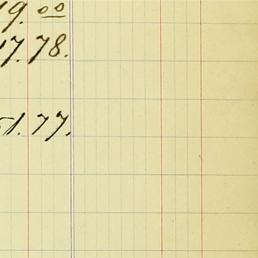 19.00
17.78.
51.77.